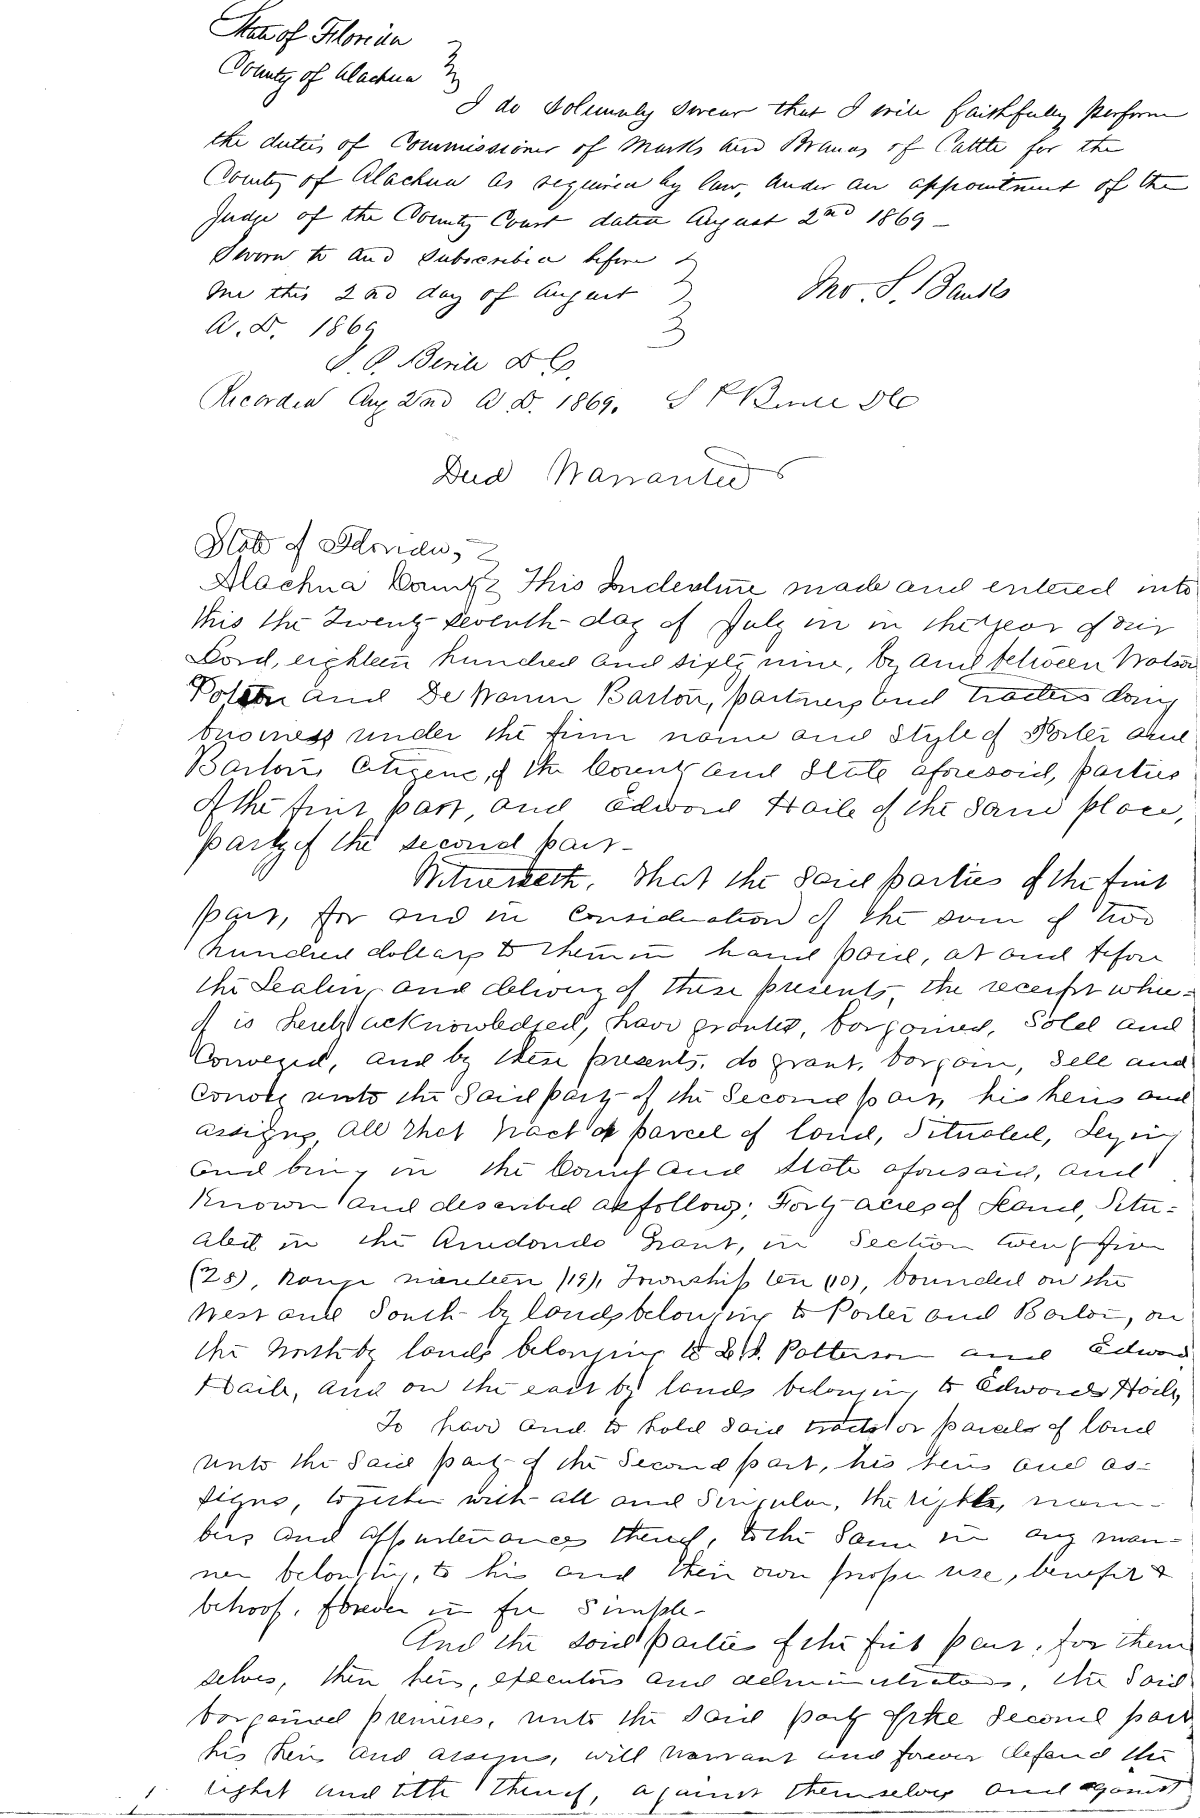 State of Florida
County of Alachua
I do solemnly swear that I will faithfully perform
the duties of Commissioner of Marks and Brands of Cattle for the
County of Alachua as required by law, under an appointment of the
Judge of the County Court dated August 2nd 1869 -
Sworn to and subscribed before
me this 2nd day of August
Jno. S. Banks
A.D. 1869
D C.
Recorded Aug 2nd A.D. 1869. D C
Deed Warrantee
State of Florida,
Alachua County This Indenture made and entered into
this the Twenty-seventh-day of July in in the year of our
Lord, eighteen hundred and sixty nine, by and between Watson
Porter and De Warren Barton, partners and traders doing
business under the firm name and Style of Porter and
Barton, Citizens, of the County and State aforesaid, parties
of the first part, and Edward Haile of the same place,
party of the second part-
Witnesseth, That the Said parties of the first
part, for and in consideration of the sum of two
hundred dollars to them in hand paid, at and before
the Sealing and delivery of these presents, the receipt where-
of is hereby acknowledged, have granted, bargained, Sold and
Conveyed, and by these presents, do grant, bargain, Sell and
convey unto the Said party of the Second part, his heirs and
assigns, all that tract or parcel of land, Situated, Lying
and being in the County and State aforesaid, and
Known and described as follows; Forty-acres of Land, Situ-
ated in the Arredondo Grant, in Section twenty five
(25), Range nineteen (19), Township ten (10), bounded on the
West and South by lands belonging to Porter and Barton, on
the North by lands belonging to Patterson and Edward
Haile, and on the east by lands belonging to Edwards Haile,
To have and to hold Said tracts or parcels of land
unto the Said party of the Second part, his heirs and as-
signs, together with all and Singular, the rights, mem-
bers and appurtenances thereof, to the Same in any man-
ner belonging, to his and their own proper use, benefit &
behoof, forever in fee Simple-
And the said parties of the first part, for them
selves, their heirs, executors and administrators, the Said
bargained premises, unto the said party of the Second part
his heirs and assigns, will warrant and forever defend the
right and title thereof, against themselves and against